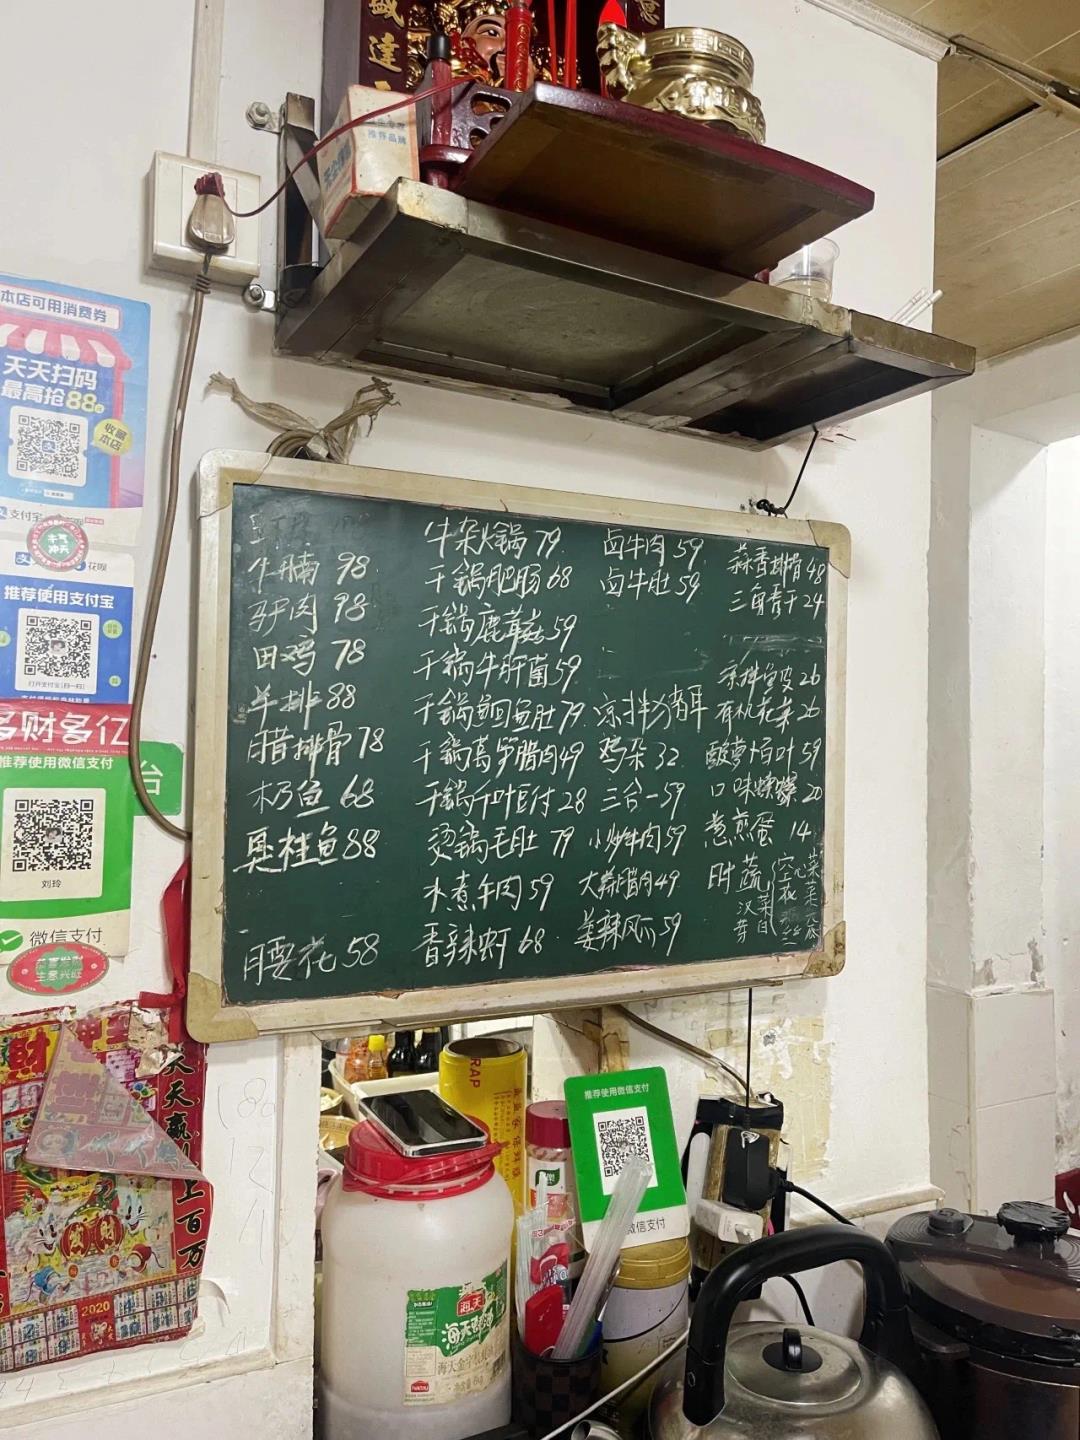 盛
達
意
推荐品牌
本店可用消费券
天天扫码
最高抢88元
收藏
本店
支付宝
牛气
冲天
花呗
推荐使用支付宝
打开支付宝[扫一扫]
多财多亿
推荐使用微信支付
刘玲
微信支付
恭喜发财
生意兴旺
台
牛腩 98
驴肉 98
田鸡 78
羊排 88
腊排骨 78
鱼 68
臭桂鱼 88
腰花 58
牛杂火锅 79
干锅肥肠 68
干锅鹿茸菇 59
干锅牛肝菌 59
干锅鱼回鱼肚 79
干锅莴笋腊肉 49
干锅千叶豆付 28
烫锅毛肚 79
水煮牛肉 59
香辣虾 68
卤牛肉 59
卤牛肚 59
凉拌猪耳
鸡杂 32
三合一 59
小炒牛肉 59
大蒜腊肉 49
姜辣凤爪 59
蒜香排骨 48
三角青干 24
凉拌鱼皮 26
有机花菜 26
酸萝卜百叶 59
口味螺蛳 20
煮煎蛋 14
时蔬
空心菜
汉菜
芽白
财
天天赢
上百万
2020
RAP
推荐使用微信支付
微信支付
海天